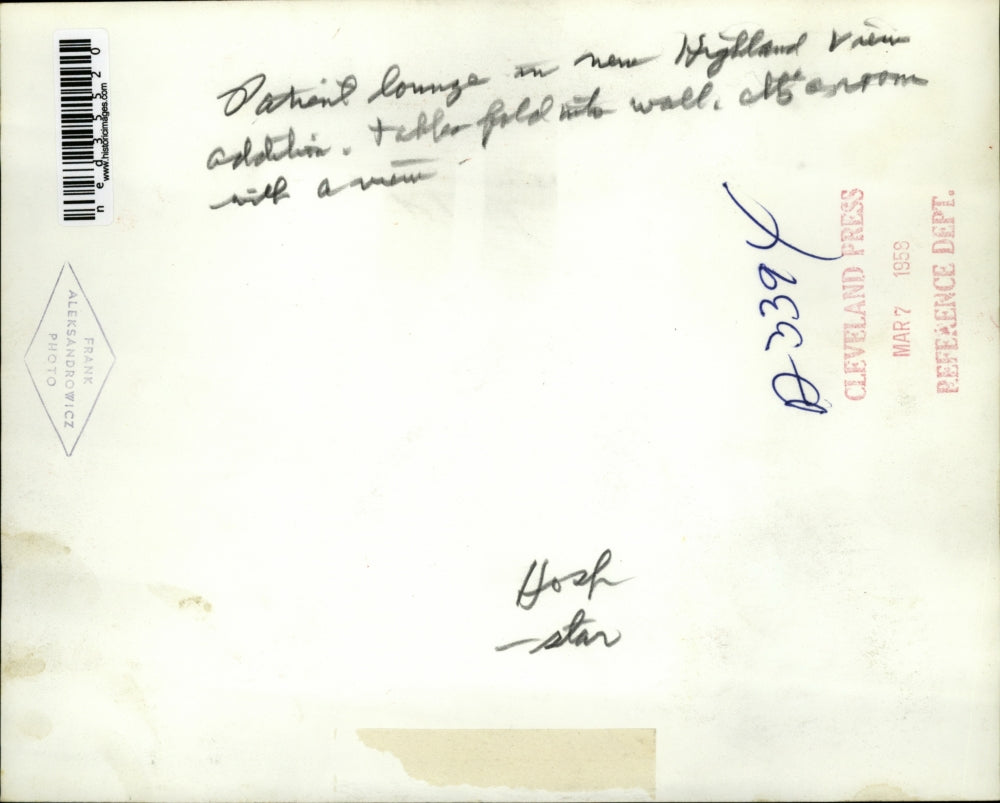 Patient lounge in new Highland View
addition. tables fold into wall. It's a room
with a view
ned35520
www.historicimages.com
FRANK
ALEKSANDROWICZ
PHOTO
CLEVELAND PRESS
MAR 7 1959
REFERENCE DEPT.
Hosp
- star